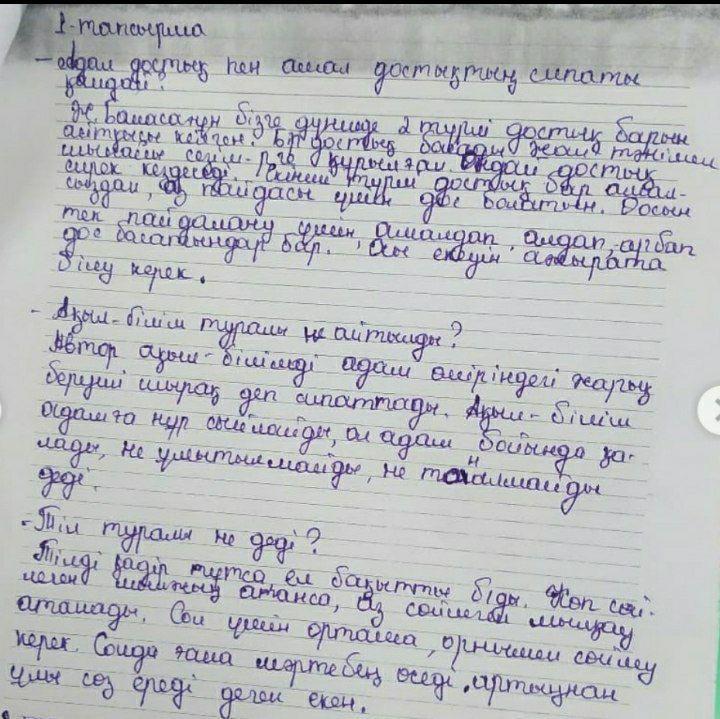 1-тапсырма
- Адал достық пен амал достықтың сипаты
қандай?
Ж. Баласағұн бізге дүниеде 2 түрлі достық барын
айтқысы келген. Бір достық бағадан жан тәнімен
шынайы сенім-ге құрылған. Ондай достық
сирек кездеседі. Екінші түрлі достық бар амал-
сыздан, өз пайдасы үшін дос болатын. Досын
тек пайдалану үшін, амалдап, алдап, арбап
дос болатындар бар. Осы екеуін ажырата
білу керек.
- Ақыл-білім туралы не айтылды?
Автор ақыл-білімді адам өміріндегі жарық
беруші шырақ деп сипаттады. Ақыл-білім
адамға нұр сыйлайды, ол адам бойында қа-
лады, не ұмытылмайды, не тоналмайды
деді.
- Тіл туралы не деді?
Тілді қадір тұтса, ел бақытты біды. Көп сөй-
леген мылжың атанса, аз сөйлеген мылқау
аталады. Сол үшін орташа, орнымен сөйлеу
керек. Сонда ғана мәртебең өседі, артыңнан
ұлы сөз ереді деген екен.